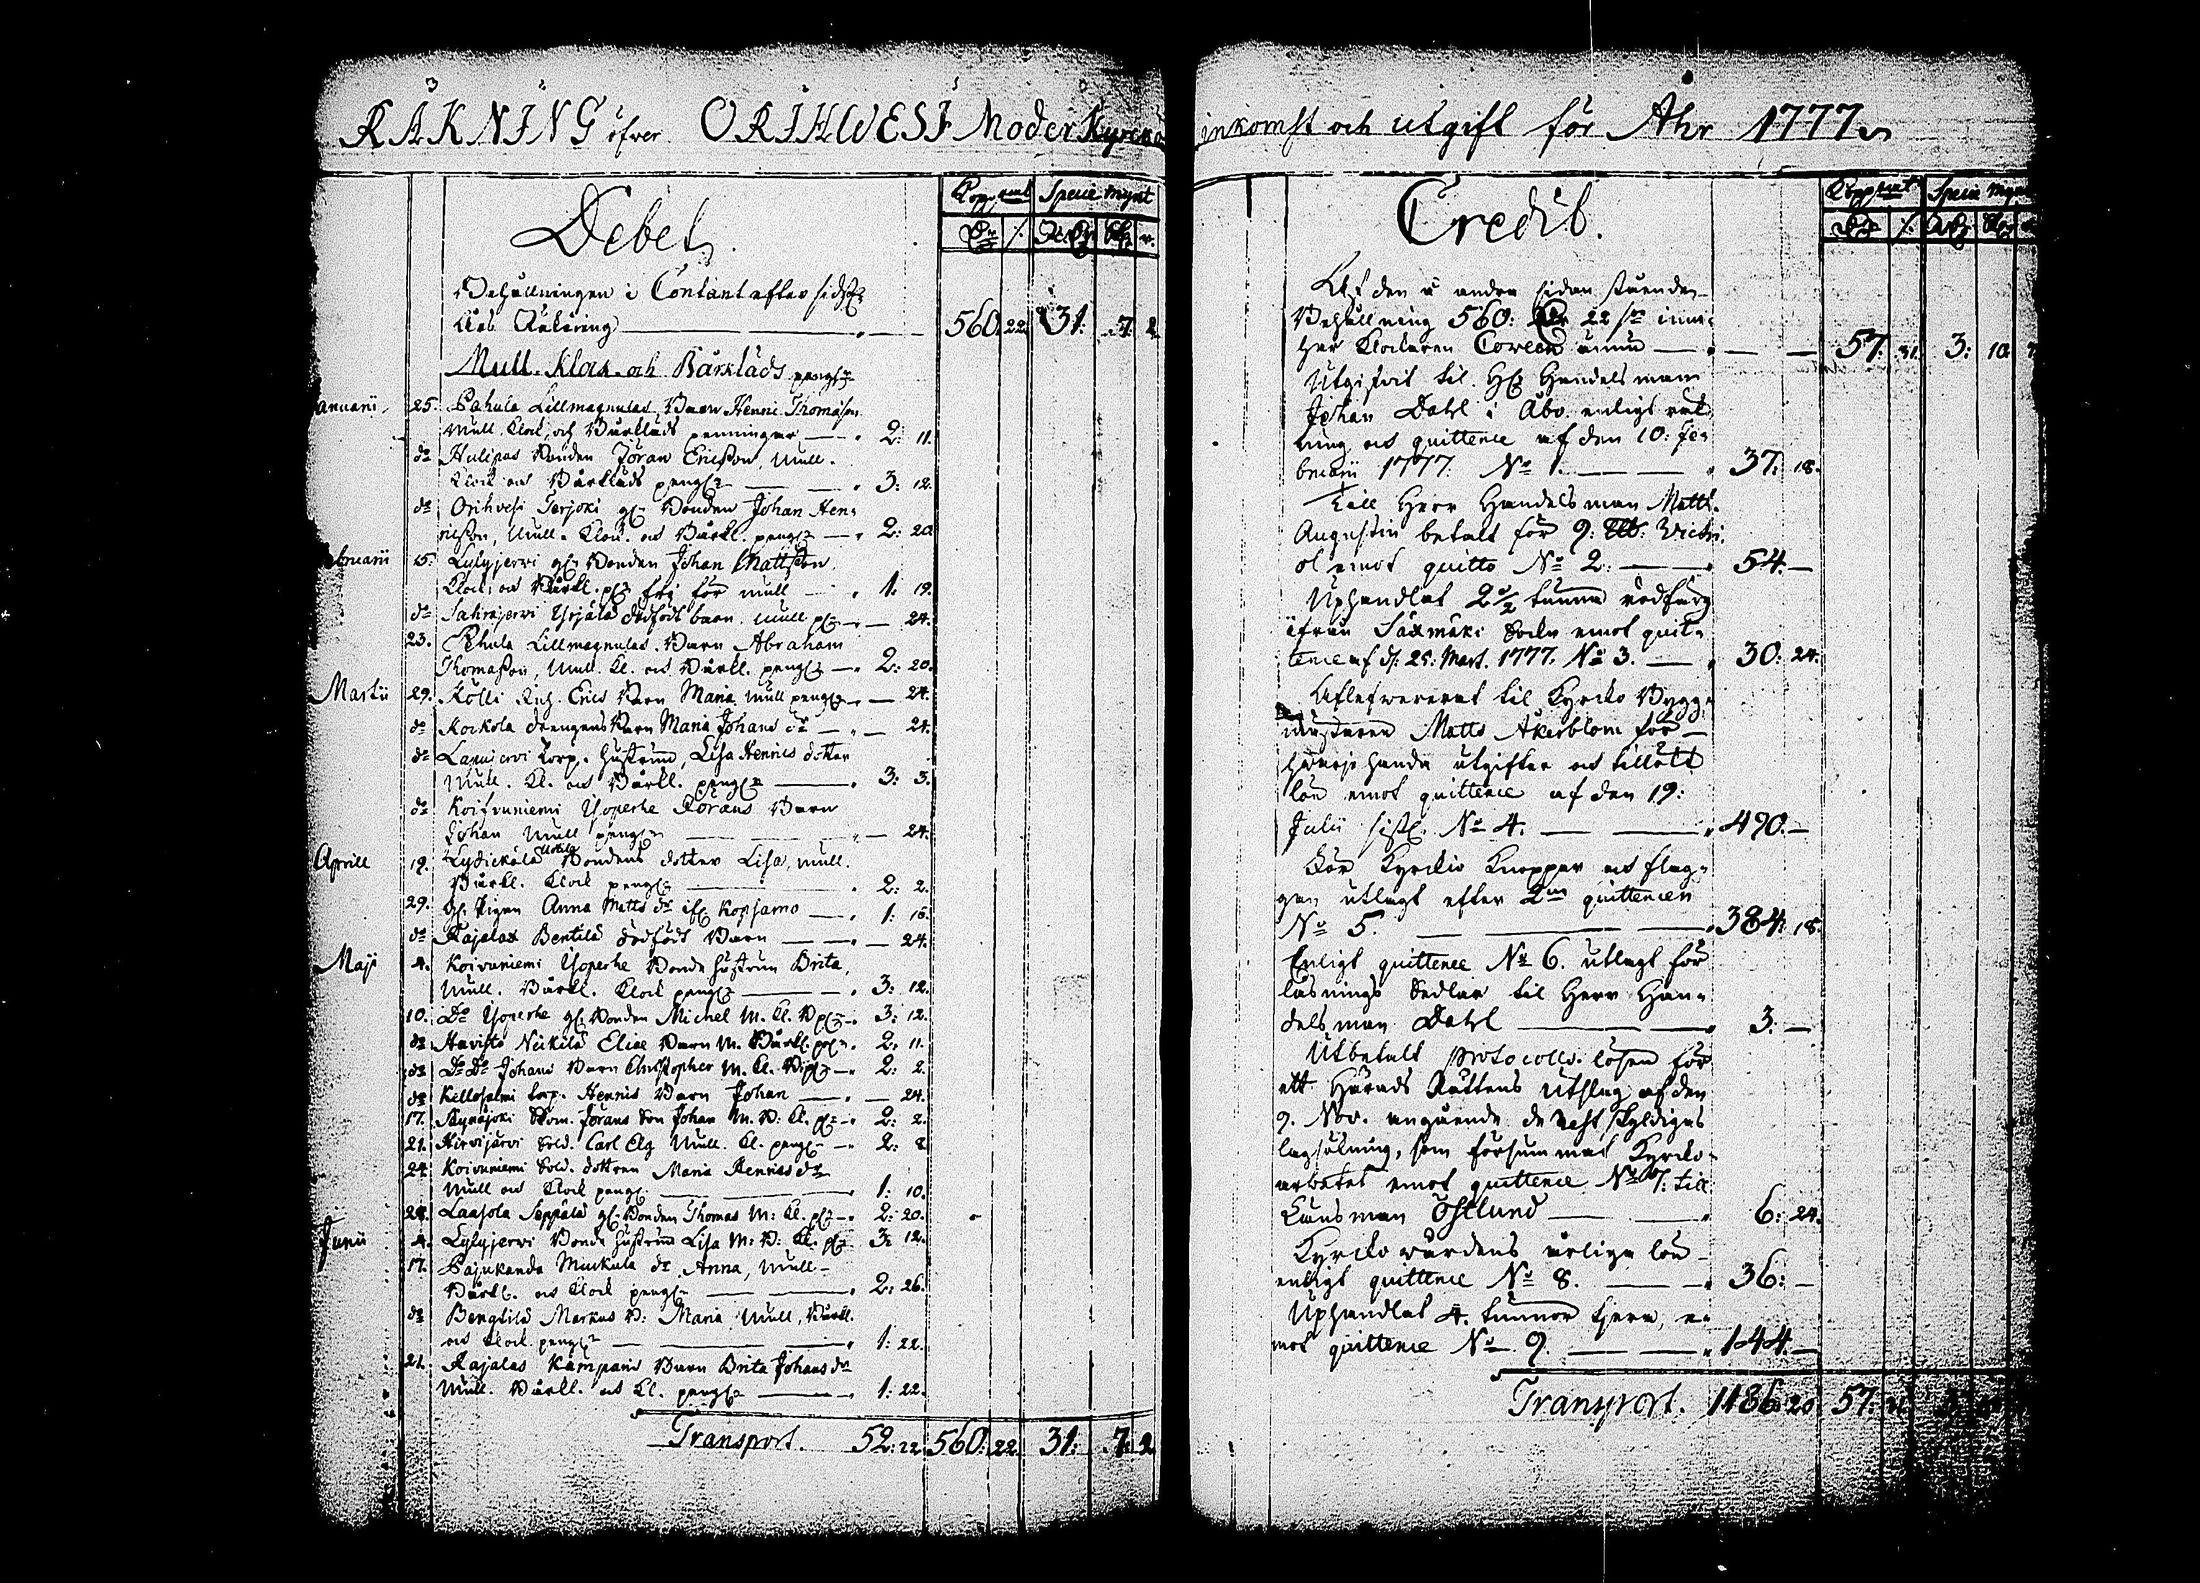 RÄKNING öfver ORIHWESI Moder Kyrckio inkomst och utgift för Åhr 1777
Debet
Kopp. mt Specie mynt
Behållningen i Contant efter sidsta
Års Räkning 560. 22. 31: 7. 2
Mull. Klock och Bårklāds peng:r
Januarii. 25. Pahula Lillmagnulas Barn Henric Thomasson
Mull, Klock, och Bårklāds penningar 2: 11.
do Hulipas Bonden Jöran Ericsson, Mull.
Klock och Bårklāds peng:r 3: 12.
do Orihvesi Terjoki Bonden Johan Hen-
ricsson, Mull. Klock. och Bårkl. peng:r 2: 20
Februarii 15. Lylyjervi Bonden Johan Mattsson
Klock, och Bårkl. fri för mull 1: 19.
do Sahrajervi Yrjälä dödfödt barn mull 24.
23. Pahula Lillmagnulas Barn Abraham
Thomasson, Mull. Kl. och Bårkl. peng:r 2: 20.
Martii 29. Kölli Erics Barn Maria mull peng:r 24.
do Kockola drengens Barn Maria Johans dr 24.
do Torp. hustrun, Lisa Henrics dotter
Mull. Kl. och Bårkl. peng:r 3: 3.
do Koivuniemi Yoperhe Jörans Barn
Johan Mull peng:r 24.
Aprill 19. Lydickälä Uotila Bondens dotter Lisa, mull.
Bårkl. Klock peng:r 2: 2.
29. Pigan Anna Matts dr Kopsamo 1: 16.
do Rajalax Bentilä dödfödt Barn 24.
Maji 4. Koivuniemi Yoperhe Bonde hustrun Brita,
Mull. Bårkl. Klock peng:r 3: 12.
10. Do Yoperhe Bonden Michel M. Kl. B 3: 12.
do Havisto Nickilä Elias Barn M. Bårkl. 2: 11.
do Do Do Johans Barn Christopher M. Kl. B 2: 2.
do Kellosalmi torp. Henrics Barn Johan 24.
17. Jörans Son Johan M. B: Kl. 2: 2.
21. Hirvijärvi Sold. Carl Elg Mull. Kl. peng:r 2: 8
24 Koivuniemi Sold. dottren Maria Henrics dr
Mull och Klock peng:r 1: 10.
24. Laasola Seppälä Bonden Thomas M: Kl. 2: 20.
Junii 4. Lylyjervi Bonde hustrun Lisa M: B: Kl. 3: 12.
17. Pajukanda Muckula dr Anna, Mull
Bårkl. och Klock peng:r 2: 26.
do Bengtilä Markus B: Maria Mull, Bårkl.
och Klock peng:r 1: 22.
21. Rajalas Kämpani Barn Brita Johans dr
Mull. Bårkl. och Kl. peng:r 1: 22.
Transport. 52: 22. 560: 22. 31: 7. 2
Credit.
Kopp mt Specie mynt
Af den å andra sidan stående
Behållning 560: 22 inne-
har Klockaren Coreen ännu 57: 31. 3: 10.
Utgifvit til Handelsman
Johan Dahl i Åbo enligt räk-
ning och quittence af den 10: Fe-
bruarii 1777. No 1. 37: 18.
Till Herr Handelsman Matts
Augustin betalt för 9:
emot quitto No 2. 54.
Uphandlat 2 1/2 tunna rödfärg
ifrån Säxmäki Sockn emot quit-
tence af d: 25: Mart. 1777. No 3. 30: 24.
Aflefvererat til Kyrcko Bygg-
mästaren Matts Åkerblom för
hvarjehanda utgifter och
lön emot quittence af den 19:
Julii No 4. 490.
För Kyrckio Knoppar och flag-
gen utlagt efter 2ne quittencer
No 5. 384: 18.
Enligt quittence No 6. utlagt för
läsnings Sedlar til Herr Han-
delsman Dahl 3.
Utbetalt protocolls lösen för
ett Härads Rättens utslag af den
9. Nov. angående de skyldigas
lagsökning, som försummat Kyrcko-
arbetet emot quittence No 7: till
Länsman Östlund 6: 24.
Kyrcko wärdens årliga lön
enligt quittence No 8. 36:
Uphandlat 4. tunnor tjera, e-
mot quittence No 9. 144.
Transport. 1186 20 57: